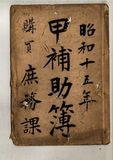 昭和十五年
甲補助簿
購買 庶務課